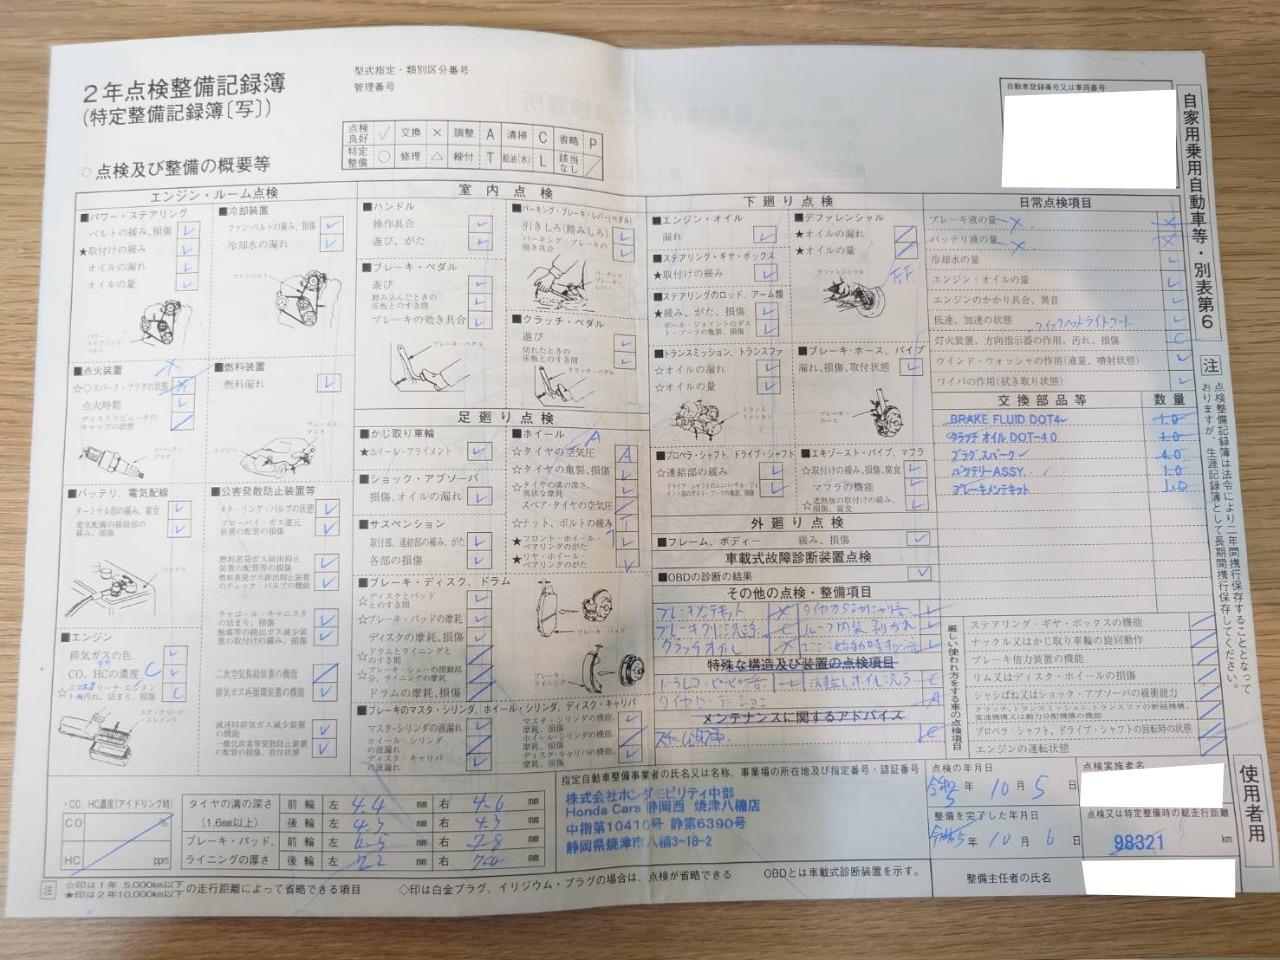 2年点検整備記録簿
(特定整備記録簿〔写〕)
型式指定・類別区分番号
管理番号
点検良好 ✓ 交換 × 調整 A 清掃 C 省略 P
特定整備 ○ 修理 △ 締付 T 給油(水) L 該当なし /
○点検及び整備の概要等
エンジン・ルーム点検
■パワー・ステアリング
ベルトの緩み、損傷
★取付けの緩み
オイルの漏れ
オイルの量
パワーステアリングベルト
■冷却装置
ファン・ベルトの緩み、損傷
冷却水の漏れ
ファンベルト
■点火装置
☆◇スパーク・プラグの状態
点火時期
ディストリビュータのキャップの状態
スパークプラグ
■燃料装置
燃料漏れ
エンジン
■バッテリ、電気配線
ターミナル部の緩み、腐食
電気配線の接続部の緩み、損傷
バッテリ
■公害発散防止装置等
メターリング・バルブの状態
ブローバイ・ガス還元装置の配管の損傷
燃料蒸発ガス排出抑止装置の配管等の損傷
燃料蒸発ガス排出抑止装置のチェック・バルブの機能
チャコール・キャニスタの詰まり、損傷
触媒等の排出ガス減少装置の取付けの緩み、損傷
二次空気供給装置の機能
排気ガス再循環装置の機能
減速時排気ガス減少装置の機能
一酸化炭素等発散防止装置の配管の損傷、取付状態
■エンジン
排気ガスの色
CO、HCの濃度
エア・クリーナ・エレメント
室内点検
■ハンドル
操作具合
遊び、がた
■ブレーキ・ペダル
遊び
踏み込んだときの床板とのすき間
ブレーキの効き具合
ブレーキ・ペダル
■パーキング・ブレーキ・レバー(ペダル)
引きしろ(踏みしろ)
パーキング・ブレーキの効き具合
パーキング・ブレーキ・レバー
■クラッチ・ペダル
遊び
切れたときの床板とのすき間
クラッチ・ペダル
足廻り点検
■かじ取り車輪
★ホイール・アライメント
■ショック・アブソーバ
損傷、オイルの漏れ
■サスペンション
取付部、連結部の緩み、がた
各部の損傷
■ホイール
☆タイヤの空気圧
☆タイヤの亀裂、損傷
☆タイヤの溝の深さ、異状な摩耗
スペア・タイヤの空気圧
☆ナット、ボルトの緩み
★フロント・ホイール・ベアリングのがた
★リヤ・ホイール・ベアリングのがた
■ブレーキ・ディスク、ドラム
☆ディスクとパッドとのすき間
☆ブレーキ・パッドの摩耗
ディスクの摩耗、損傷
☆ドラムとライニングとのすき間
☆ブレーキ・シューの摺動部分、ライニングの摩耗
ドラムの摩耗、損傷
ブレーキ・パッド
ブレーキ・ライニング
■ブレーキのマスタ・シリンダ、ホイール・シリンダ、ディスク・キャリパ
マスタ・シリンダの液漏れ
ホイール・シリンダの液漏れ
ディスク・キャリパの液漏れ
マスタ・シリンダの機能、摩耗、損傷
ホイール・シリンダの機能、摩耗、損傷
ディスク・キャリパの機能、摩耗、損傷
下廻り点検
■エンジン・オイル
漏れ
■ステアリング・ギヤ・ボックス
★取付けの緩み
■ステアリングのロッド、アーム類
★緩み、がた、損傷
ボール・ジョイントのダスト・ブーツの亀裂、損傷
■トランスミッション、トランスファ
☆オイルの漏れ
☆オイルの量
トランスミッション
■プロペラ・シャフト、ドライブ・シャフト
☆連結部の緩み
ドライブ・シャフトのユニバーサル・ジョイント部のダスト・ブーツの亀裂、損傷
■デファレンシャル
★オイルの漏れ
★オイルの量
FF
デファレンシャル
■ブレーキ・ホース、パイプ
漏れ、損傷、取付状態
ブレーキ・ホース
■エキゾースト・パイプ、マフラ
☆取付けの緩み、損傷、腐食
マフラの機能
★遮熱板の取付けの緩み、損傷、腐食
外廻り点検
■フレーム、ボディー 緩み、損傷
車載式故障診断装置点検
■OBDの診断の結果
その他の点検・整備項目
ブレーキメンテキット
クラッチオイル
特殊な構造及び装置の点検項目
メンテナンスに関するアドバイス
自動車登録番号又は車両番号
日常点検項目
ブレーキ液の量
バッテリ液の量
冷却水の量
エンジン・オイルの量
エンジンのかかり具合、異音
低速、加速の状態
クイックヘッドライトコート
灯火装置、方向指示器の作用、汚れ、損傷
ウインド・ウォッシャの作用(液量、噴射状態)
ワイパの作用(拭き取り状態)
交換部品等 数量
BRAKE FLUID DOT4 1.0
クラッチ オイル DOT-4 0 1.0
プラグ、スパーク 4.0
バッテリーASSY. 1.0
ブレーキメンテキット 1.0
厳しい使われ方をする車の点検項目
ステアリング・ギヤ・ボックスの機能
ナックル又はかじ取り車輪の旋回動作
ブレーキ倍力装置の機能
リム又はディスク・ホイールの損傷
シャシばね又はショック・アブソーバの緩衝能力
クラッチ、トランスミッション、トランスファの断接機構、変速機構又は動力分配機構の機能
プロペラ・シャフト、ドライブ・シャフトの回転時の状態
エンジンの運転状態
自家用乗用自動車等・別表第6
注 点検整備記録簿は法令により二年間携行保存することとなっておりますが、生涯記録簿として長期間携行保存してください。
使用者用
・CO、HC濃度(アイドリング時)
CO %
HC ppm
タイヤの溝の深さ(1.6mm以上) 前輪 左 4.4 mm 右 4.6 mm
後輪 左 4.3 mm 右 4.3 mm
ブレーキ・パッド、ライニングの厚さ 前輪 左 mm 右 7.8 mm
後輪 左 7.2 mm 右 7.0 mm
指定自動車整備事業者の氏名又は名称、事業場の所在地及び指定番号・認証番号
株式会社ホンダモビリティ中部
Honda Cars 静岡西 焼津八楠店
中指第10410号 静第6390号
静岡県焼津市八楠3-18-2
点検の年月日
令和5年 10月 5日
整備を完了した年月日
令和5年 10月 6日
点検実施者名
点検又は特定整備時の総走行距離
98321 km
整備主任者の氏名
注 ☆印は1年 5,000km以下
★印は2年10,000km以下の走行距離によって省略できる項目
◇印は白金プラグ、イリジウム・プラグの場合は、点検が省略できる
OBDとは車載式診断装置を示す。